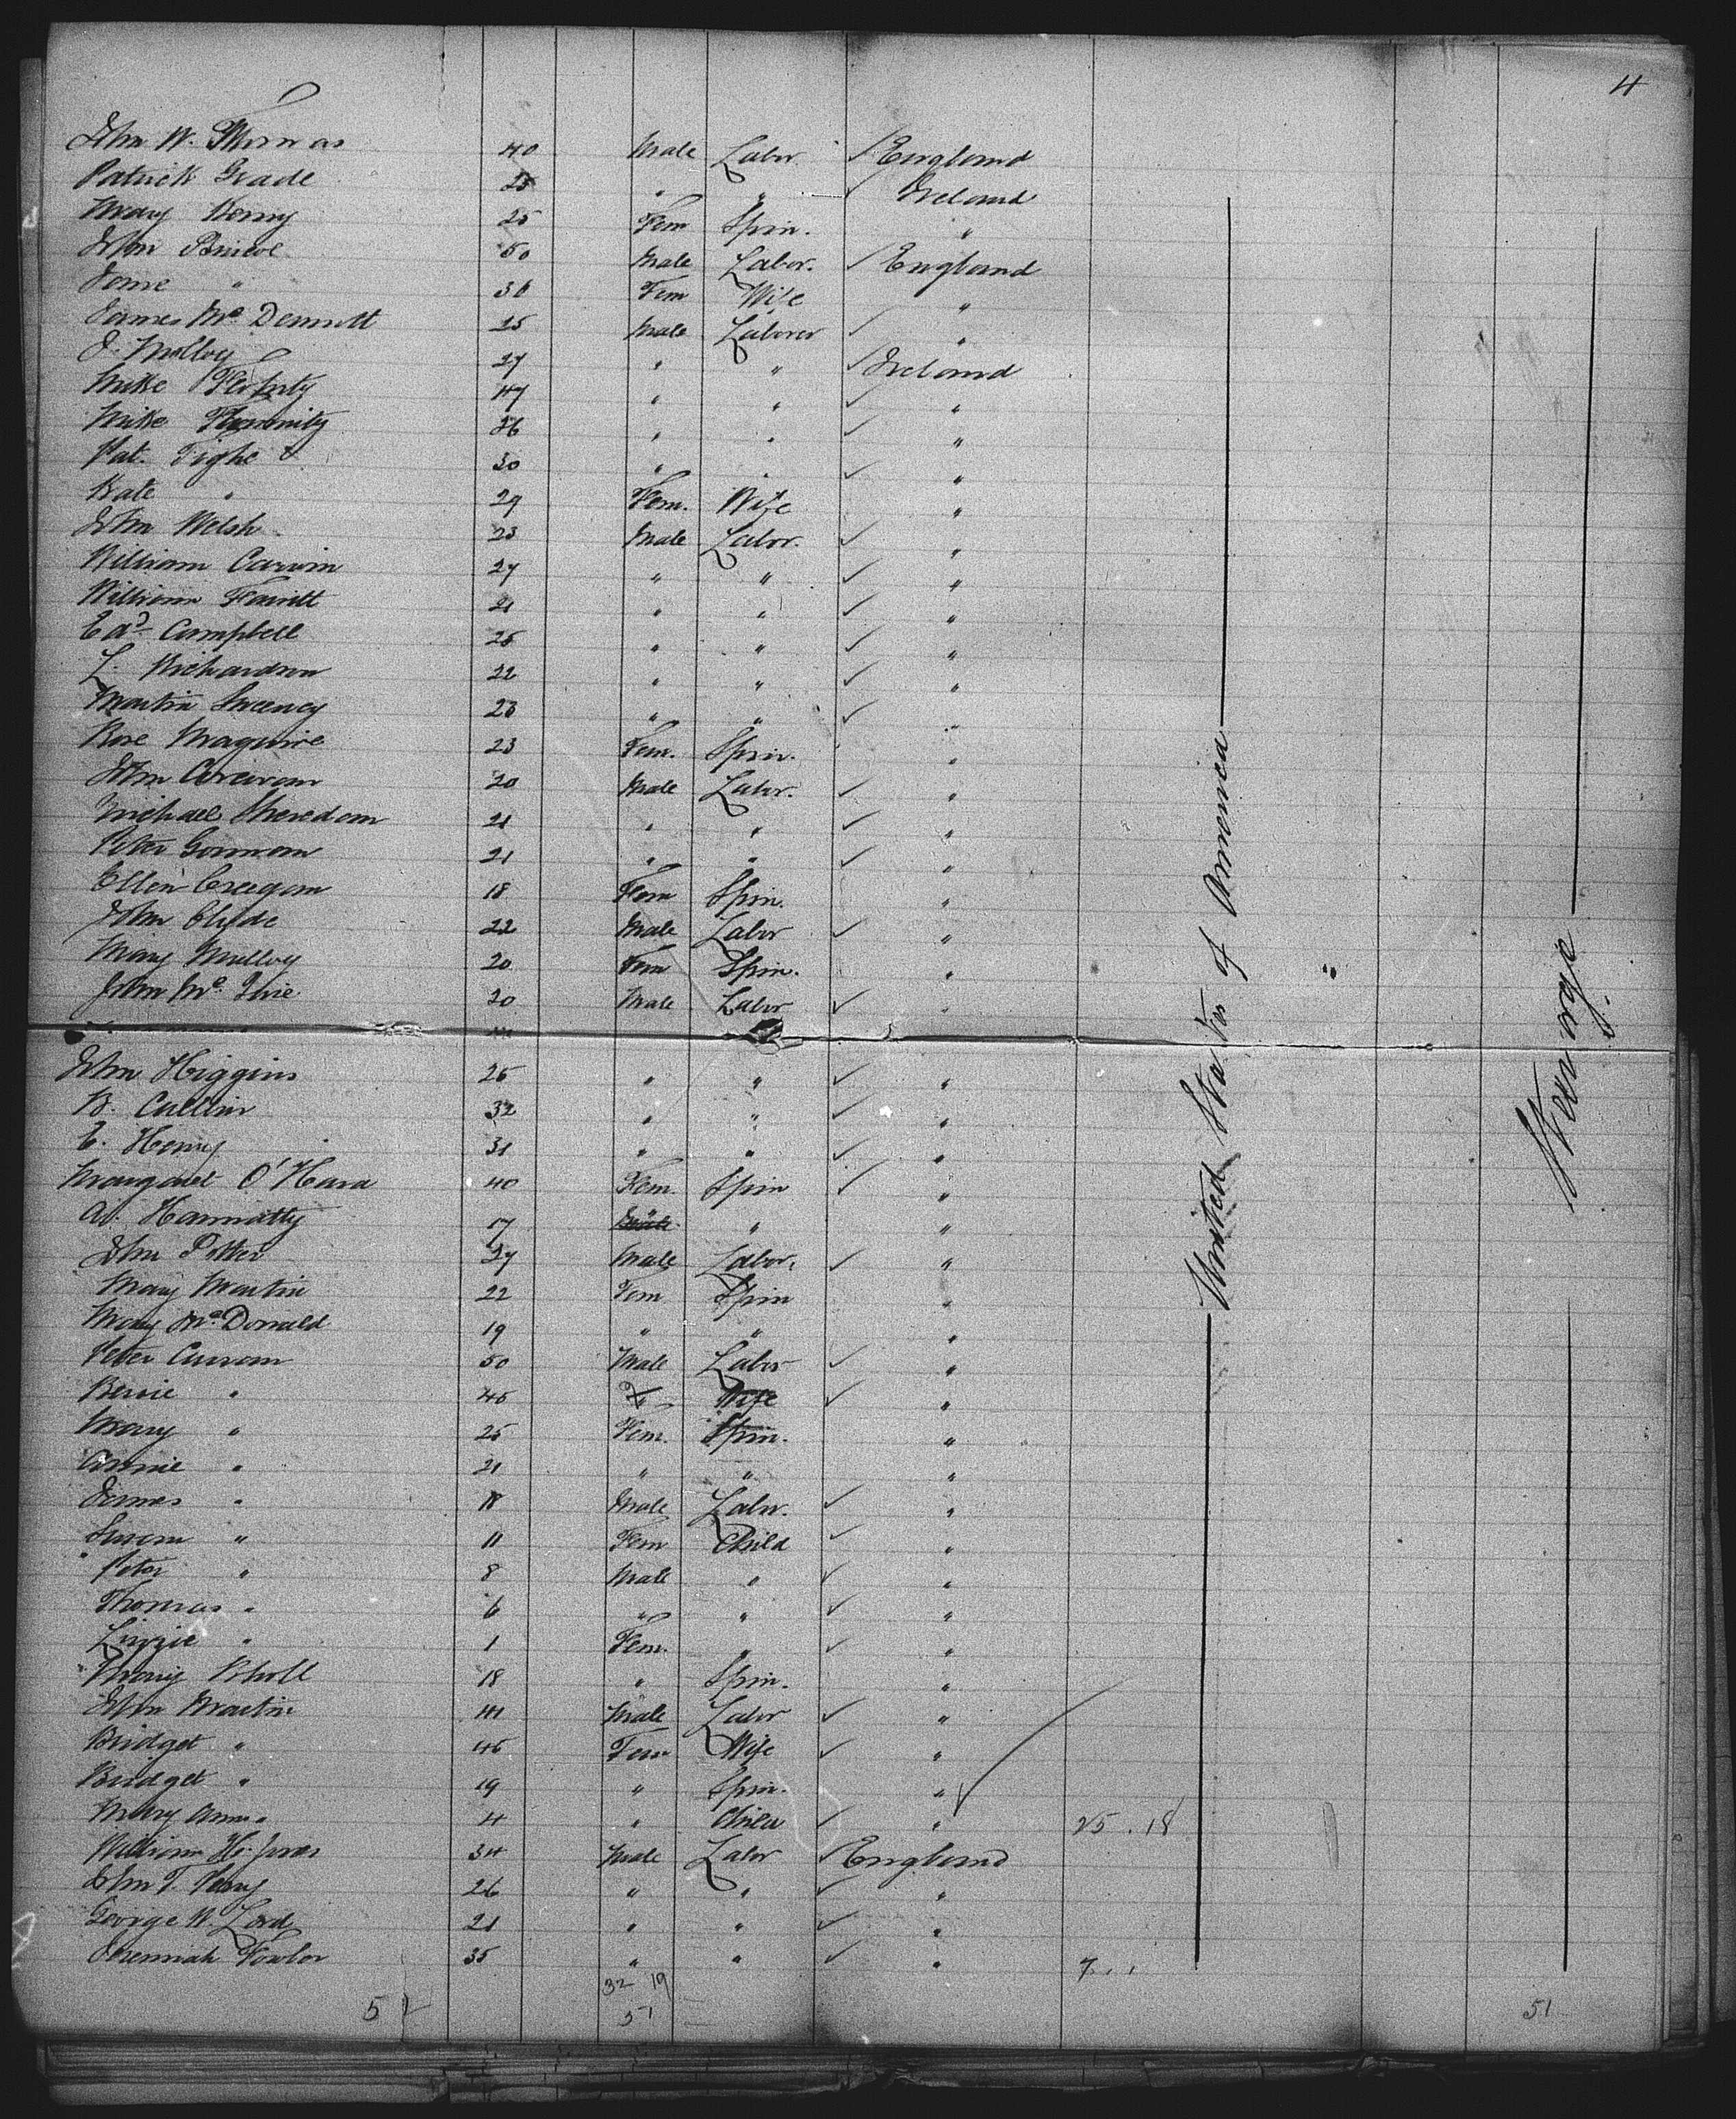 4
John W. Thomas 40 Male Labor ✓ England
Patrick Grade 25 " " ✓ Ireland
Mary Kenny 25 Fem Spin. "
John Briscoe 50 Male Labor. ✓ England
Jane " 30 Fem Wife "
James Mc Dermott 25 Male Laborer ✓ "
J. Molloy 27 " " ✓ Ireland
Mike 47 " " ✓ "
Mike 26 " " ✓ "
Pat. Tighe 30 " ✓ "
Kate " 29 Fem. Wife "
John Welsh 23 Male Labor. ✓ "
William Carvin 27 " " ✓ "
William 21 " " ✓ "
Ed^d Campbell 25 " " ✓ "
L. Richardson 22 " " ✓ "
Martin Sweeney 23 " " ✓ "
Rose Maguire 23 Fem. Spin. "
John Corcoran 20 Male Labor. ✓ "
Michael Sheredan 21 " " ✓ "
Peter Gorman 21 " " ✓ "
Ellen Creegan 18 Fem Spin. "
John Clyde 22 Male Labor ✓ "
Mary Mulloy 20 Fem Spin. "
John Mc 20 Male Labor ✓ "
John Higgins 25 " " ✓ "
B. Cullin 32 " " ✓ "
E. Henry 31 " " ✓ "
Margaret O'Hara 40 Fem. Spin ✓ "
A. Hannatty 17 " " "
John Potter 27 Male Labor. ✓ "
Mary Martin 22 Fem Spin "
Mary Mc Donald 19 " " "
Peter Curran 50 Male Labor ✓ "
Bessie " 45 F Wife ✓ "
Mary " 25 Fem. Spin. "
Annie " 21 " " "
James " 18 Male Labor. ✓ "
Susan " 11 Fem Child ✓ "
Peter " 8 Male " ✓ "
Thomas " 6 " " ✓ "
Lizzie " 1 Fem. " ✓ "
Mary 18 " Spin. "
John Martin 44 Male Labor ✓ "
Bridget " 45 Fem Wife ✓ "
Bridget " 19 " Spin. "
Mary Ann " 4 " Child ✓ " 25 . 18
William H. Jones 34 Male Labor ✓ England
John T. 26 " " ✓ "
George W. Lord 21 " " ✓ "
Jeremiah Fowler 35 " " ✓ " 7 . .
32 19
51 51 51
United States of America
Steerage